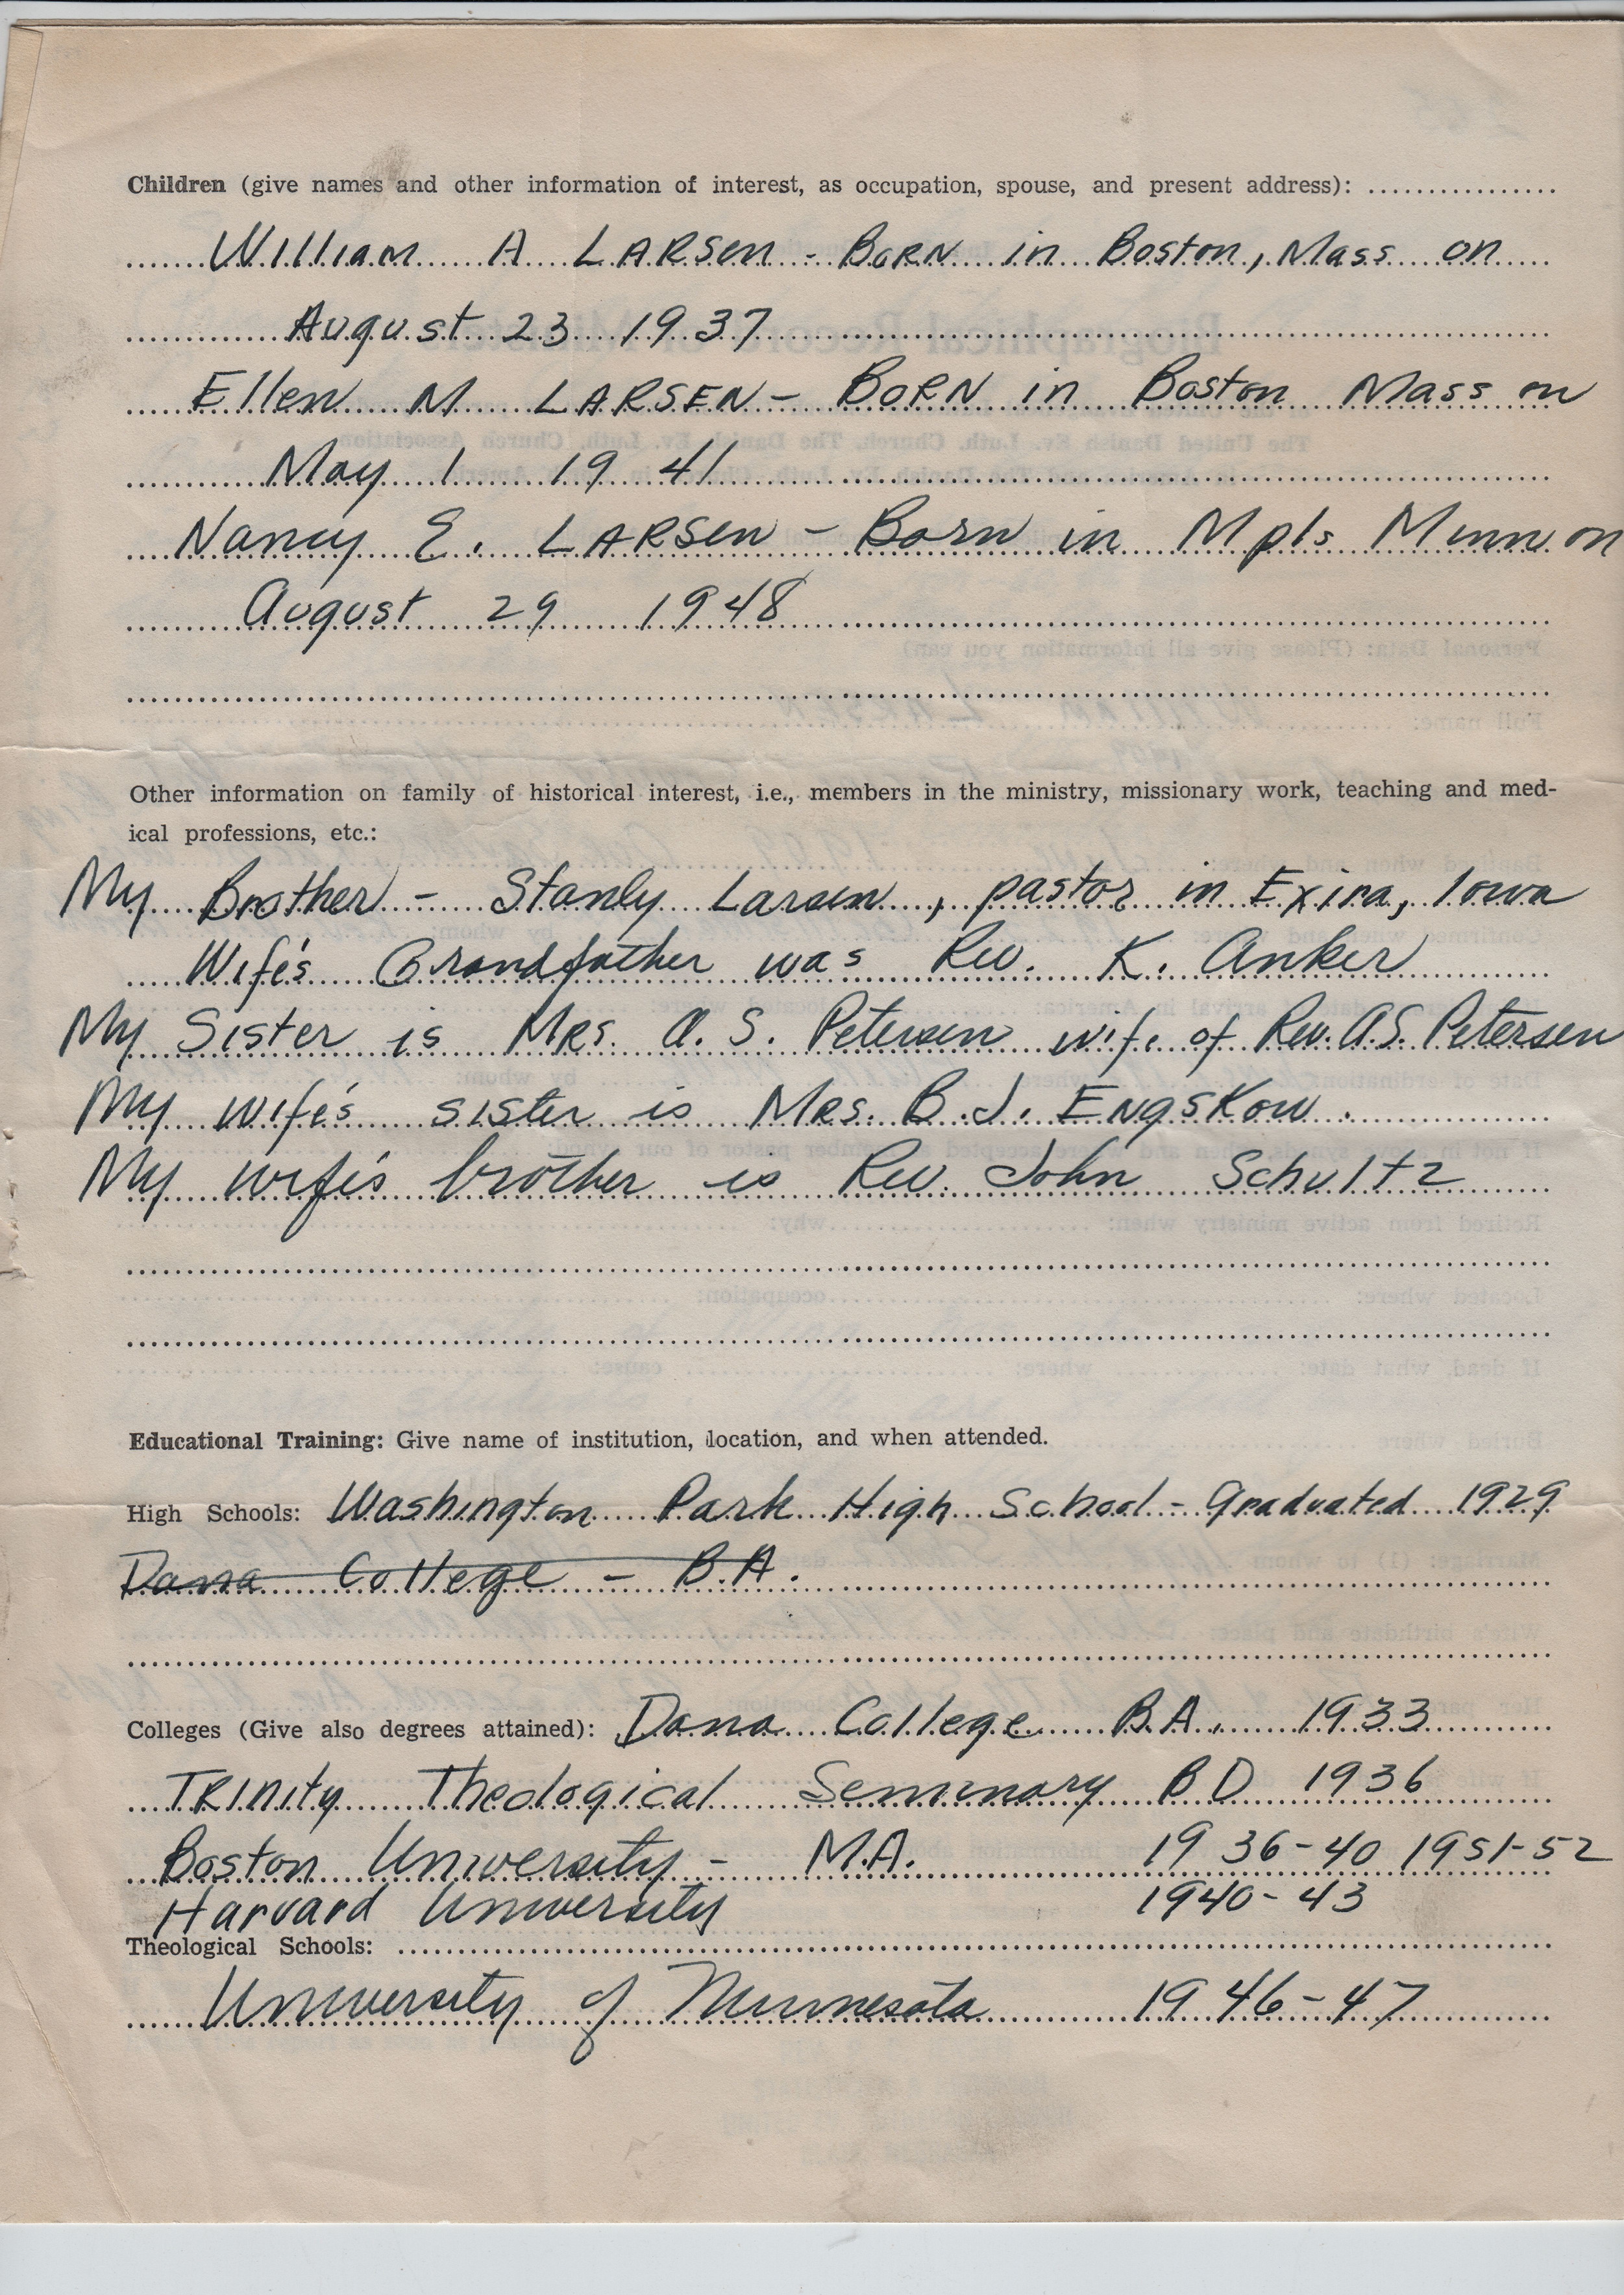 Children (give names and other information of interest, as occupation, spouse, and present address):
William A LARSEN - BORN in Boston, Mass on
August 23 1937
Ellen M LARSEN - BORN in Boston Mass on
May 1 1941
Nancy E. LARSEN - Born in Mpls Minn on
August 29 1948
Other information on family of historical interest, i.e., members in the ministry, missionary work, teaching and med-
ical professions, etc.:
My Brother - Stanly Larsen, pastor in Exira, Iowa
Wife's Grandfather was Rev. K. Anker
My Sister is Mrs. A. S. Petersen wife of Rev. A.S. Petersen
My wife's sister is Mrs. B. J. Engskow.
My wife's brother is Rev John Schultz
Educational Training: Give name of institution, location, and when attended.
High Schools: Washington Park High School - Graduated 1929
Dana College - B.A.
Colleges (Give also degrees attained): Dana College B.A. 1933
Trinity Theological Seminary B D 1936
Boston University - M.A. 1936-40 1951-52
Harvard University 1940-43
Theological Schools:
University of Minnesota 1946-47